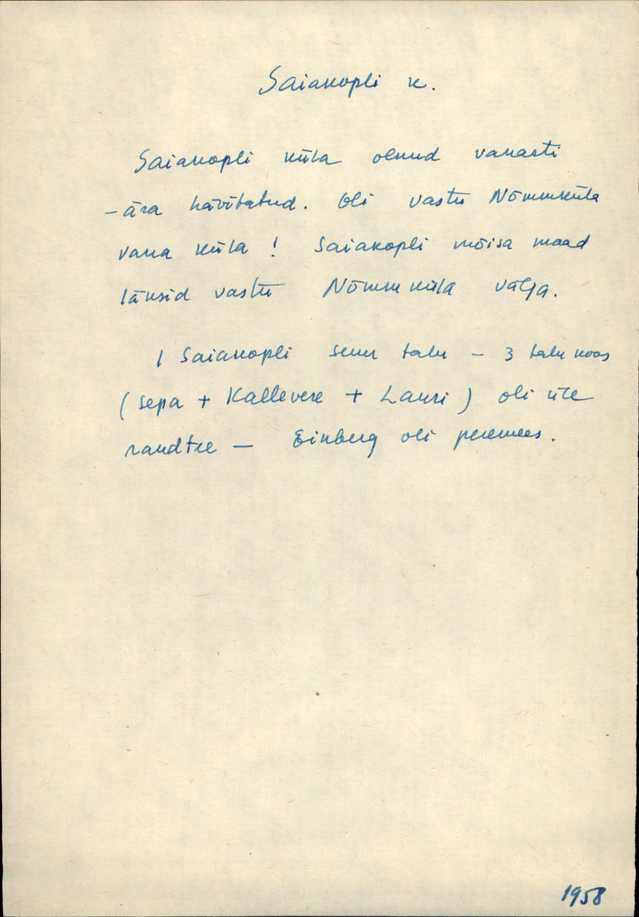 Saiakopli k.
Saiakopli küla olnud vanasti
- ära hävitatud. Oli vastu Nõmmküla
vana küla! Saiakopli mõisa maad
läksid vastu Nõmmküla välja.
1 Saiakopli suur talu - 3 talu koos
(Sepa + Kallevere + Lauri) oli üle
raudtee - Einberg oli peremees.
1958